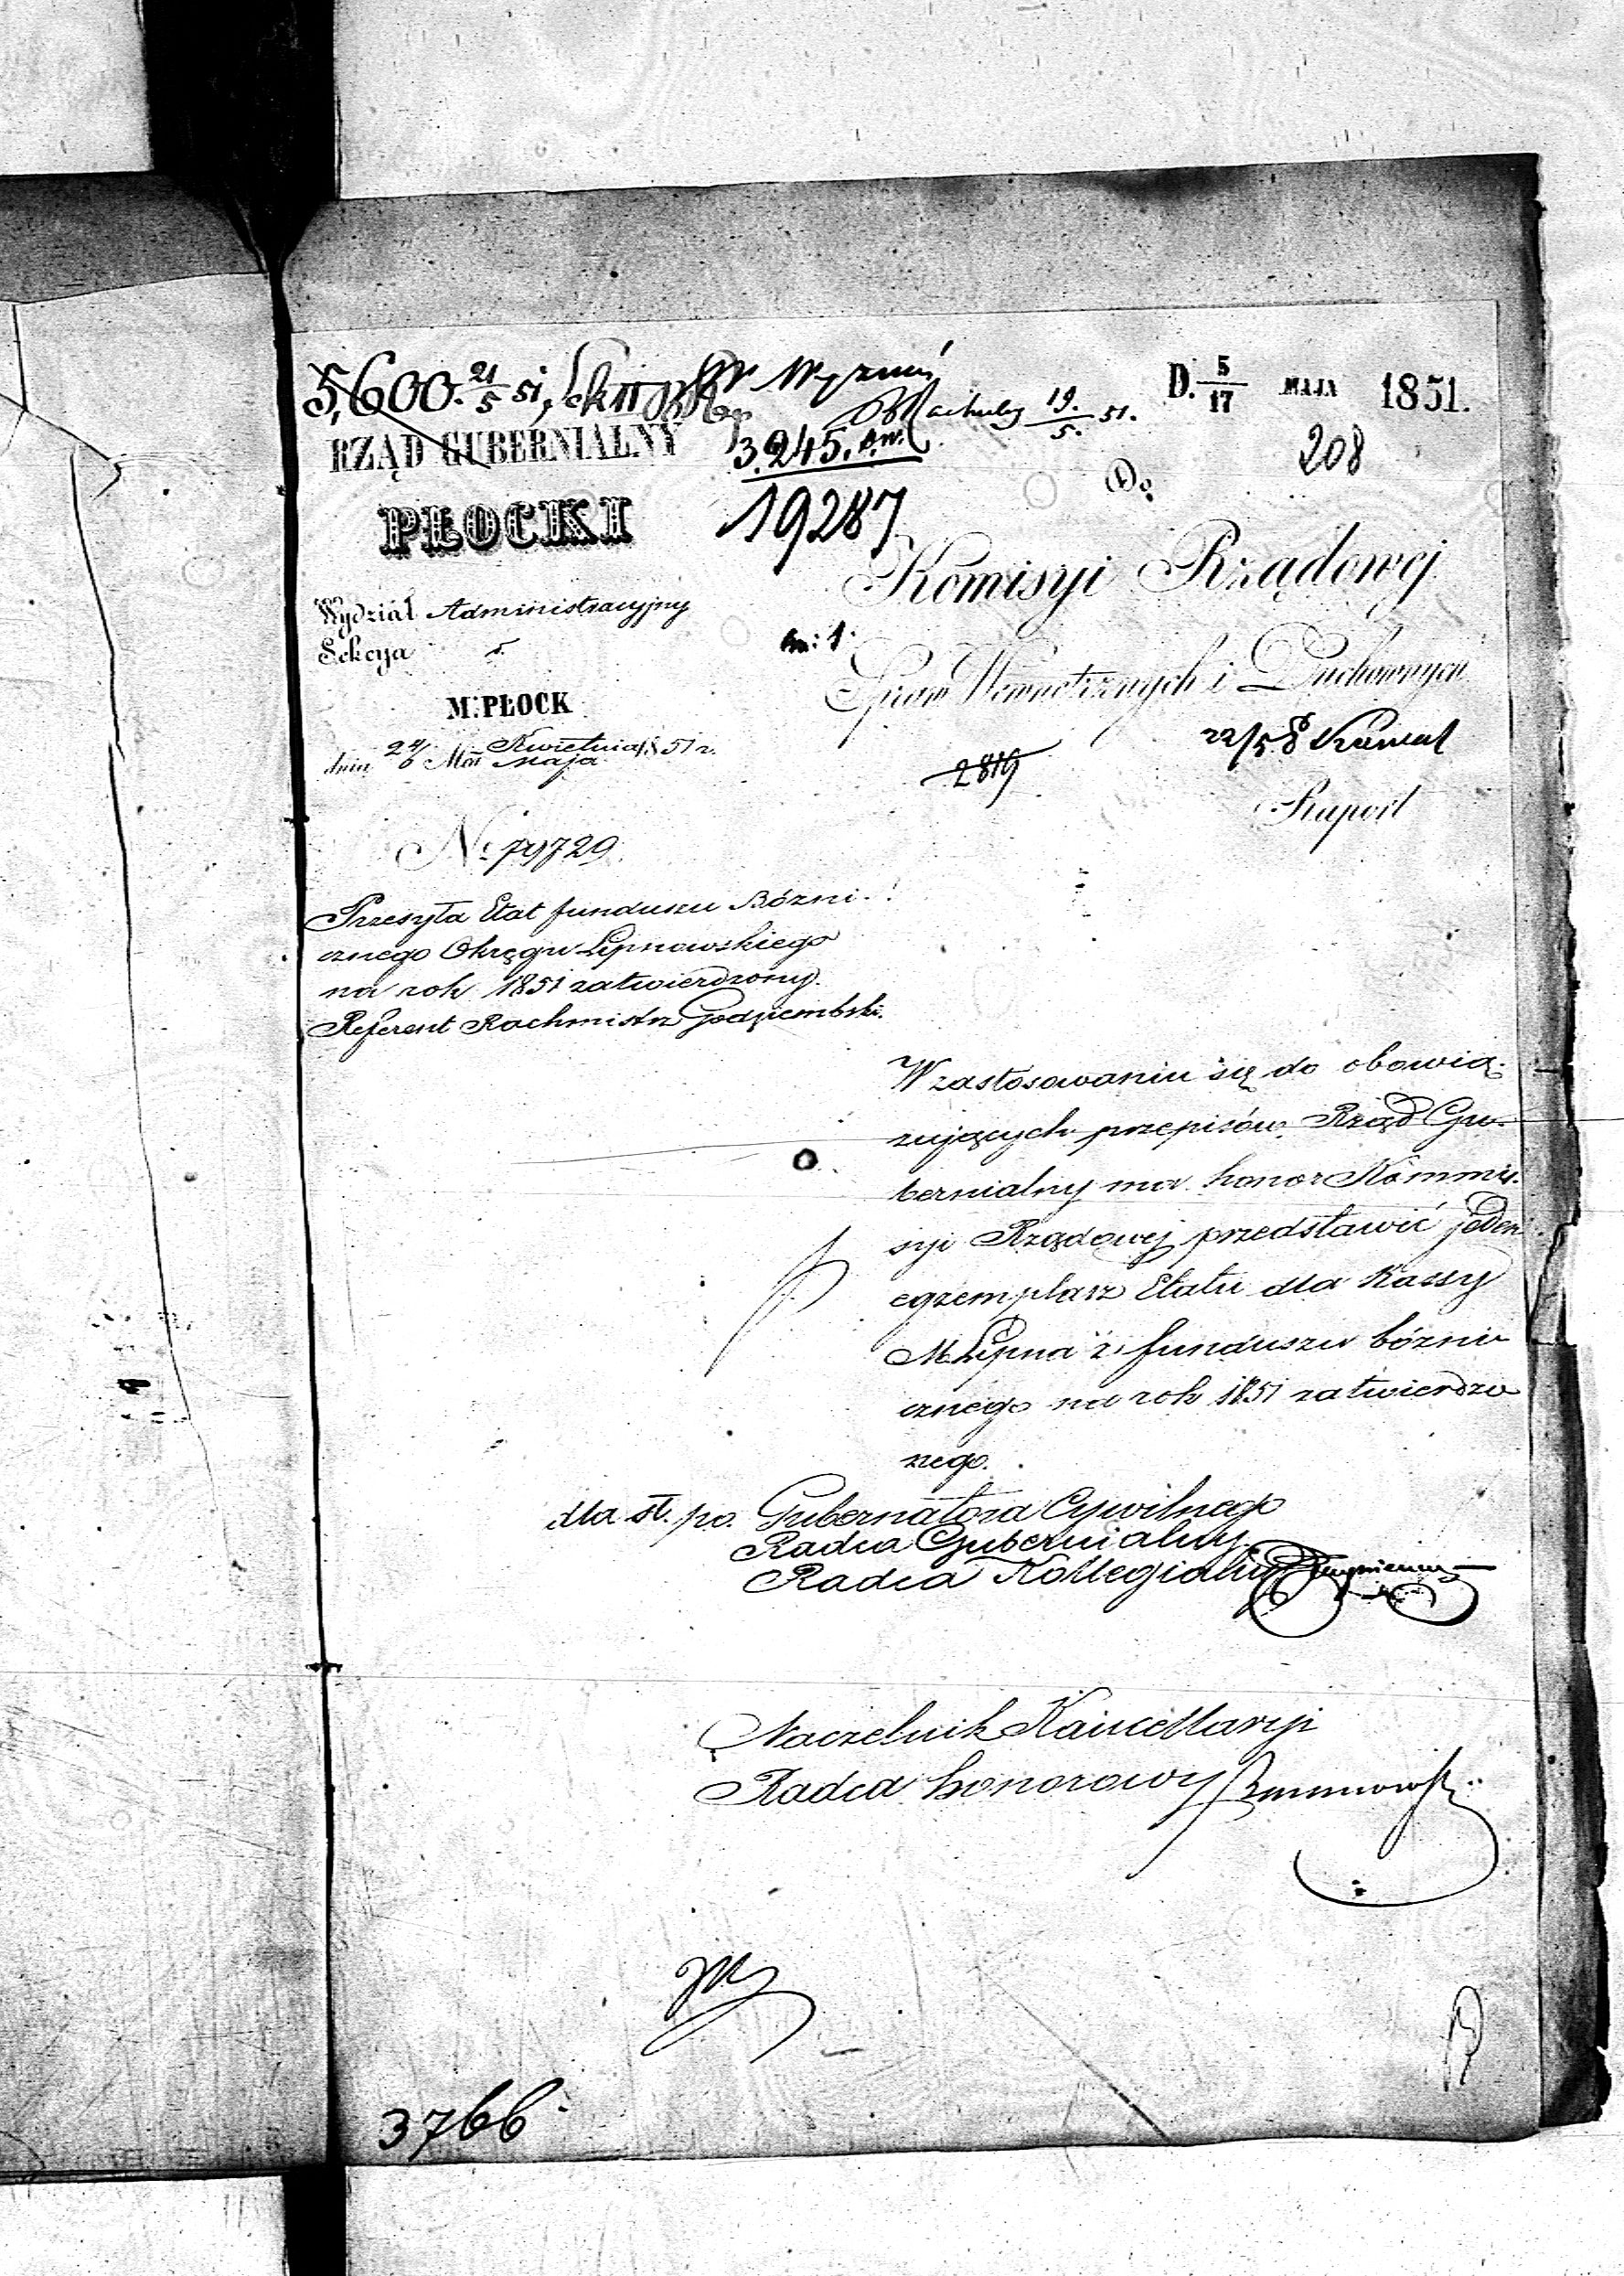 5,600. 21/5 51,
Wyznań
D. 5/17 MAJA 1851.
19./5. 51.
RZĄD GUBERNIALNY
3.245.
208
Do
PŁOCKI
19287
Komisyi Rządowej
Wydział Administracyjny
Sekcya
Spraw Wewnetrznych i Duchownych
M. PŁOCK
22/5
dnia 24/6 Kwietnia/Maja 1851 r.
2819
Raport
No 19729
Przesyła Etat funduszu Bózni-
cznego Okręgu Lipnowskiego
na rok 1851 zatwierdzony.
Referent Rachmistrz Godziembski.
W zastosowaniu się do obowią-
zujących przepisów, Rząd Gu-
bernialny ma honor Kommis-
syi Rządowej przedstawić jeden
egzemplarz Etatu dla Kassy
M. Lipna z funduszu bózni-
cznego na rok 1851 zatwierdzo
nego.
dla st. po. Gubernatora Cywilnego
Radca Gubernialny
Radca Kollegialny
Naczelnik Kancellaryi
Radca honorowy
3766